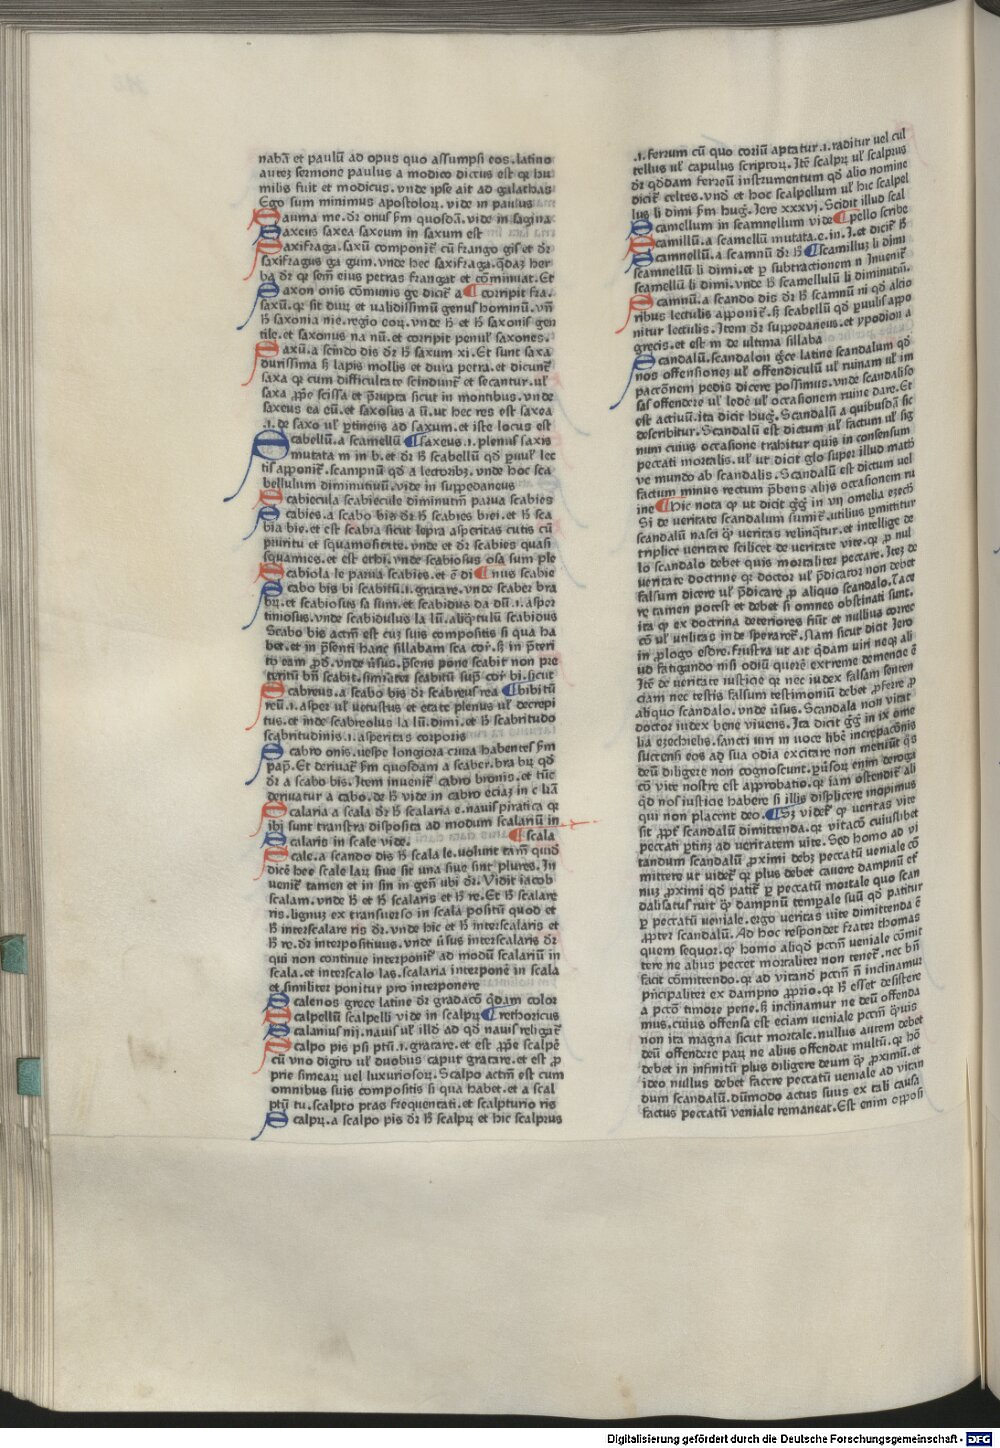 nabā et paulū ad opus quo assumpsi eos. latino
autez sermone paulus a modico dictus est qꝛ hu
milis fuit et modicus. vnde ipse ait ad galathas
Ego sum minimus apostoloꝝ. vide in paulus
Sauma me. dꝛ onus ẜm quosdā. vide in sagina
Saxeus saxea saxeum in saxum est
Saxifraga. saxū componit̄ cū frango gis et dꝛ
saxifragus ga gum. vnde hec saxifraga. q̄daz her
ba dꝛ qꝛ sem̄ eius petras frangat et cōminuat. Et
Saxon onis cōmunis ge dicit̄ a ¶ corripit fra.
saxū. qꝛ sit duꝝ et ualidissimū genus hominū. vn̄
hꝰ saxonia nie. regio eoꝝ. vnde hꝰ et hꝰ saxonis gen
tile. et saxonus na nū. et corripit penul̄ saxones.
Saxū. a scindo dis dꝛ hꝰ saxum xi. Et sunt saxa
durissima sꝫ lapis mollis et dura petra. et dicunt̄
saxa qꝛ cum difficultate scindunt̄ et secantur. ul̄
saxa ꝓpe scissa et p̄rupta sicut in montibus. vnde
saxeus ea eū. et saxosus a ū. ut hec res est saxea
.i. de saxo ul̄ ꝑtinens ad saxum. et iste locus est
Scabellū. a scamellū ¶ saxeus. i. plenus saxis
mutata m in b. et dꝛ hꝰ scabellū qd̄ paruul̄ lec
tis apponit̄. scampnū qd̄ a lectoribꝫ. vnde hoc sca
bellulum diminutiuū. vide in suppedaneus
Scabiecula scabiecule diminutiū parua scabies
Scabies. a scabo bis dꝛ hꝰ scabies biei. et hꝰ sca
bia bie. et est scabia sicut lepra asperitas cutis cū
pruritu et squamositate. vnde et dꝛ scabies quasi
squamies. et est ethi. vnde scabiosus osa sum ple
Scabiola le parua scabies. et ē di ¶ nus scabie
Scabo bis bi scabitū. i. gratare. vnde scaber bra
bꝝ. et scabiosus sa sum. et scabidus da dū. i. asper
tiniosus. vnde scabidulus la lū. aliq̄tulū scabidus
Scabo bis actiū est cuꝫ suis compositis si qua ha
bet. et in p̄senti hanc sillabam sca coꝛ̄. sꝫ in p̄teri
to eam ꝓd̄. vnde ūsus. p̄sens pone scabit non pre
teritū bn̄ scabit. similiter scabitū sup̄ coꝛ̄ bi. sicut
Scabreus. a scabo bis dꝛ scabreus rea ¶ bibitū
reū. i. asper ul̄ uetustus et etate plenus ul̄ decrepi
tus. et inde scabreolus la lū. dimi. et hꝰ scabritudo
scabritudinis. i. asperitas corporis
Scabro onis. uespe longiora crura habentes ẜm
pap̄. Et deriuat̄ ẜm quosdam a scaber. bra bꝝ qd̄
dꝛ a scabo bis. Item inuenit̄ cabro bronis. et tūc
deriuatur a cabo. de hꝰ vide in cabro eciaꝫ in c lrā
Scalaria a scala dꝛ hꝰ scalaria e. nauis piratica qꝛ
ibi sunt transtra disposita ad modum scalariū in
Scalaris in scale vide. ¶ scala
Scale. a scando dis hꝰ scala le. uolunt tam̄ quid̄
dicē hee scale laꝝ siue sit una siue sint plures. In
uenit̄ tamen et in sin in gen̄ ubi dꝛ. Vidit iacob
scalam. vnde hꝰ et hꝰ scalaris et hꝰ re. Et hꝰ scalare
ris. lignuꝫ ex transuerso in scala positū quod et
hꝰ interscalare ris dꝛ. vnde hic et hꝰ interscalaris et
hꝰ re. dꝛ interpositiuus. vnde ūsus interscalaris dꝛ
qui non continue interponit̄ ad modū scalariū in
scala. et interscalo las. scalaria interponē in scala
et similiter ponitur pro interponere
Scalenos grece latine dꝛ gradacō q̄dam color
Scalpellū scalpelli vide in scalpꝝ ¶ rethoricus
Scalanius nij. nauis ul̄ illd̄ ad qd̄ nauis religat̄
Scalpo pis psi ptū. i. gratare. et est ꝓpe scalpē
cū vno digito ul̄ duobus caput gratare. et est ꝓ
prie simeaꝝ uel luxuriosoꝝ. Scalpo actiū est cum
omnibus suis compositis si qua habet. et a scal
ptū tu. scalpto ptas frequentati. et scalpturio ris
Scalpꝝ. a scalpo pis dꝛ hꝰ scalpꝝ et hic scalprus
.i. ferrum cū quo coriū aptatur. i. raditur uel cul
tellus ul̄ capulus scriptoꝝ. Itē scalpꝝ ul̄ scalprus
dꝛ qd̄dam ferreū instrumentum qd̄ alio nomine
dicit̄ celtes. vnd̄ et hoc scalpellum ul̄ hic scalpel
lus li dimi ẜm huḡ. Jere xxxvj. Scidit illud scal
Scamellum in scamnellum vide ¶ pello scribe
Scamillū. a scamellū mutata. e. in. i. et dicit̄ hꝰ
Scamnellū. a scamnū dꝛ hꝰ ¶ scamilluꝫ li dimi
scamnellū li dimi. et ꝑ subtractionem n inuenit̄
scamellū li dimi. vnde hꝰ scamellulū li diminutiū.
Scamnū. a scando dis dꝛ hꝰ scamnū ni qd̄ alcio
ribus lectulis apponit̄. sꝫ scabellū qd̄ ꝑuulis appo
nitur lectulis. Item dꝛ suppedaneus. et ypodion a
grecis. et est m de ultima sillaba
Scandalū. scandalon grece latine scandalum qd̄
nos offensionez ul̄ offendiculū ul̄ ruinam ul̄ im
pactōnem pedis dicere possimus. vnde scandaliso
sas offendere ul̄ lede ul̄ occasionem ruine dare. Et
est actiuū. ita dicit huḡ. Scandalū a quibusdā sic
describitur. Scandalū est dictum ul̄ factum ul̄ sig
num cuius occasione trahitur quis in consensum
peccati mortalis. ul̄ ut dicit glo super illud math̄
ve mundo ab scandalis. Scandalū est dictum uel
factum minus rectum p̄bens alijs occasionem ru
ine ¶ Hic nota qꝫ ut dicit ḡḡ in vij omelia ezech̄
Si de ueritate scandalum sumit̄. utilius ꝑmittitur
scandalū nasci qꝫ ueritas relinq̄tur. et intellige de
triplice ueritate scilicet de ueritate vite. qꝛ ꝓ nul
lo scandalo debet quis mortaliter peccare. Itez de
ueritate doctrine qꝛ doctor ul̄ p̄dicator non debet
falsum dicere ul̄ p̄dicare ꝓ aliquo scandalo. Tace
re tamen potest et debet si omnes obstinati sunt.
ita qꝫ ex doctrina deteriores fiūt et nullius correc
cō ul̄ utilitas inde speraret̄. Nam sicut dicit Jero
in ꝓlogo esdre. frustra ut ait q̄dam uiri neqꝫ ali
ud fatigando nisi odiū querē extreme demencie ē
Itē de ueritate iusticie qꝛ nec iudex falsam senten
ciam nec testis falsum testimoniū debet ꝓferre ꝓ
aliquo scandalo. vnde ūsus. Scandala non vitat
doctor iudex bene viuens. Ita dicit ḡḡ in ix ome
lia ezechielis. sancti uiri in uoce libē increpacōnis
succensi eos ad sua odia excitare non metuūt q̄s
deū diligere non cognoscunt. ꝑūsoꝝ enim deroga
cō vite nostre est approbatio. qꝛ iam ostendit̄ ali
qd̄ nos iusticie habere si illis displicere incipimus
qui non placent deo. ¶ Sꝫ videt̄ qꝫ ueritas vite
sit ꝓpt̄ scandalū dimittenda. qꝛ vitacō cuiuslibet
peccati ꝑtinꝫ ad ueritatem uite. Sed homo ad vi
tandum scandalū ꝓximi debꝫ peccatū ueniale cō
mittere ut videt̄ qꝛ plus debet cauere dampnū et̄
nuꝫ ꝓximi qd̄ patit̄ ꝑ peccatū mortale quo scan
dalisatus ruit qꝫ dampnū tempꝫale suū qd̄ patitur
ꝑ peccatū ueniale. ergo ueritas uite dimittenda ē
ꝓpter scandalū. Ad hoc respondet frater thomas
quem sequor. qꝫ homo aliqd̄ pctm̄ ueniale cōmit
tere ne alius peccet mortaliter non tenet̄. nec bn̄
facit cōmittendo. qꝛ ad vitand̄ pctm̄ n̄ inclinamur
p̄ncipaliter ex dampno ꝓprio. qꝛ hꝰ esset desistere
a pctō timore pene. sꝫ inclinamur ne deū offenda
mus. cuius offensa est eciam ueniale pctm̄ q̄uis
non ita magna sicut mortale. nullus autem debet
deū offendere paꝝ ne alius offendat multū. qꝛ hō
debet in infinitū plus diligere deum qꝫ ꝓximū. et
ideo nullus debet facere peccatū ueniale ad vitan
dum scandalū. dūmodo actus suus ex tali causa
factus peccatū veniale remaneat. Est enim opposi
Digitalisierung gefördert durch die Deutsche Forschungsgemeinschaft - DFG